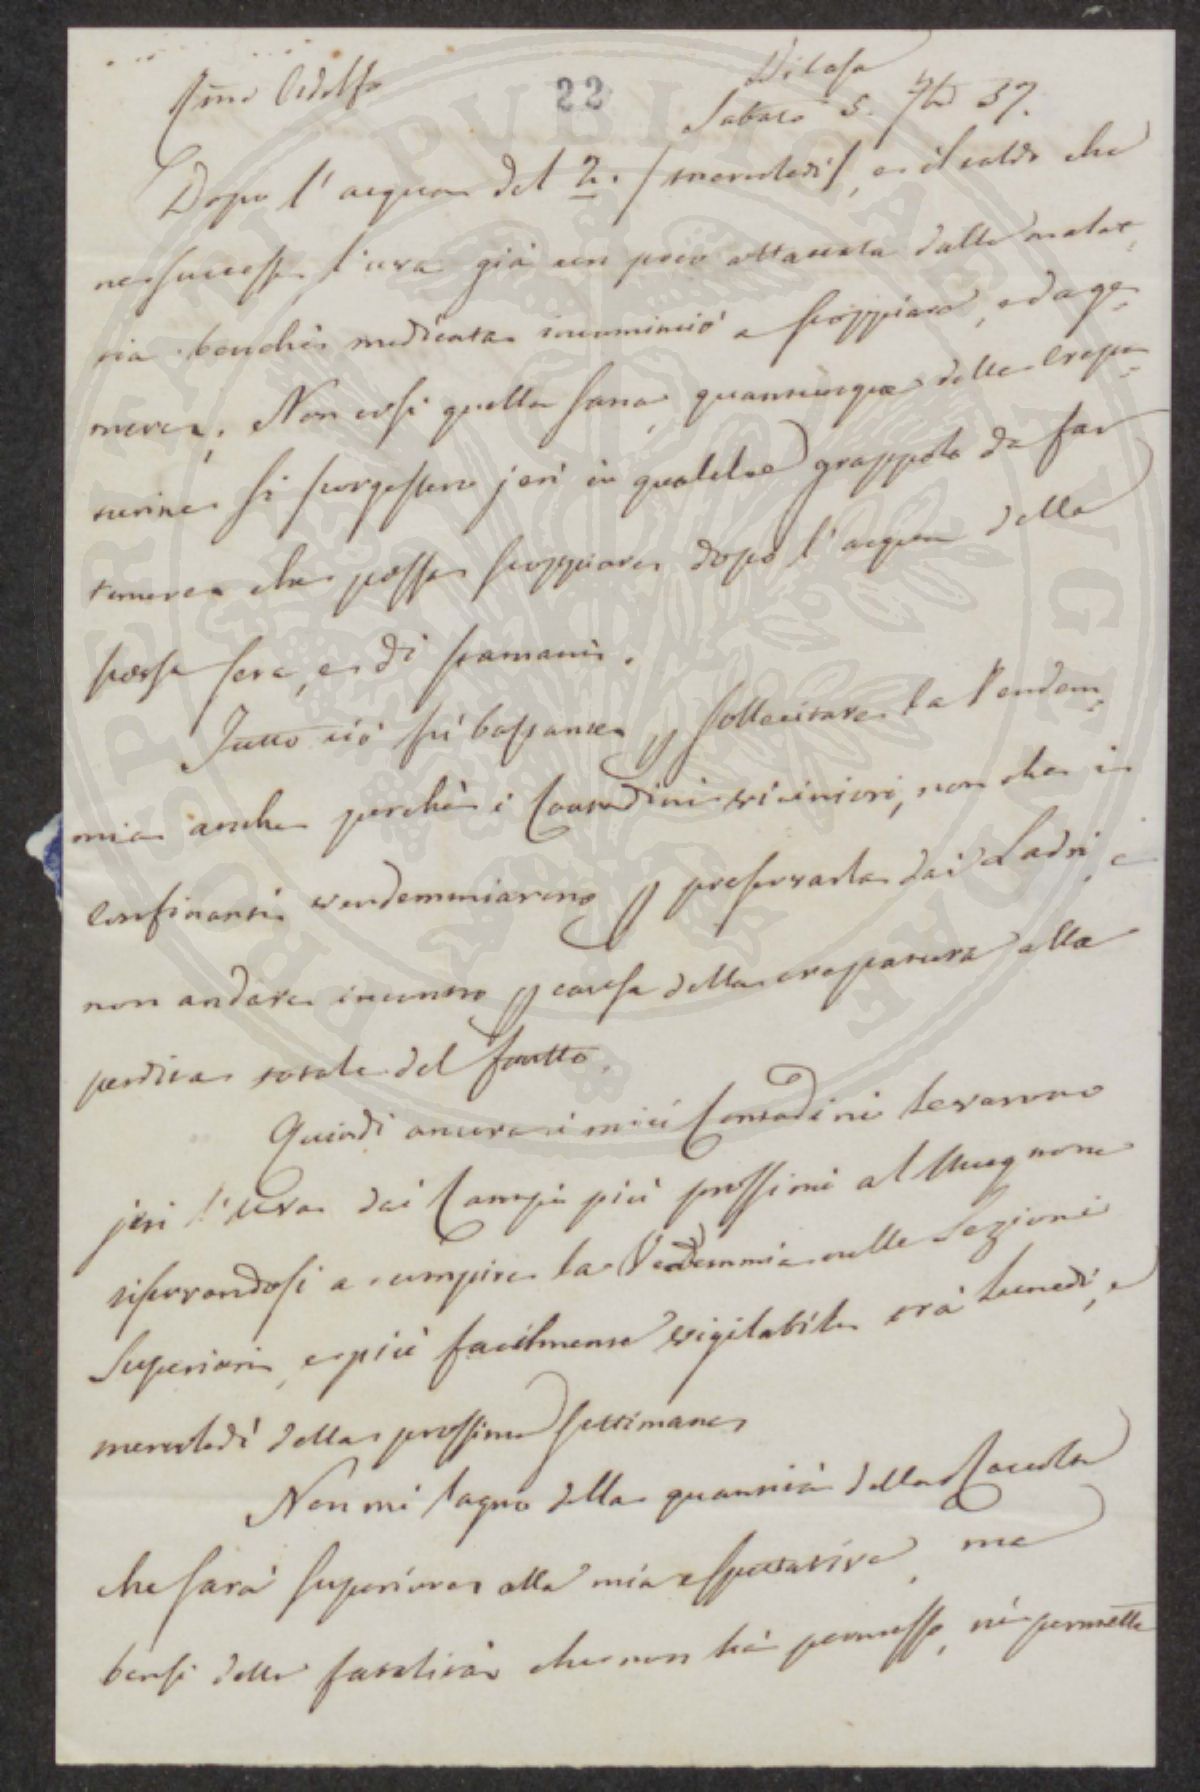 22
Di Casa
Sabato 5. 7bre 57.
Dopo l'acqua del 2. /mercoledì/, e il caldo che
ne successe, l'uva già un poco attaccata dalla malat-
tia benchè medicata incominciò a scoppiare, ed a ge-
mere. Non così quella sana, quantunque delle crepa-
ture si scorgessero jeri in qualche grappolo da far
temere che possa scoppiare dopo l'acqua della
scorsa sera, e di stamani.
Tutto ciò fù bastante p sollecitare la Vendem-
mia anche perchè i Contadini viciniori, non che i
confinanti vendemmiarono p preservarla dai Ladri, e
non andare incontro p causa della crepatura alla
perdita totale del frutto.
Quindi ancora i miei Contadini levarono
jeri l'uva dai Campi più prossimi al Mugnone
riserrandosi a compire la Vendemmia nelle Sezioni
Superiori, e più facilmente vigilabili trà lunedì, e
mercoledì della prossima settimana
Non mi lagno della quantità della Raccolta
che sarà superiore alla mia espettativa, ma
bensì della fatalità che non hà permesso, nè permette